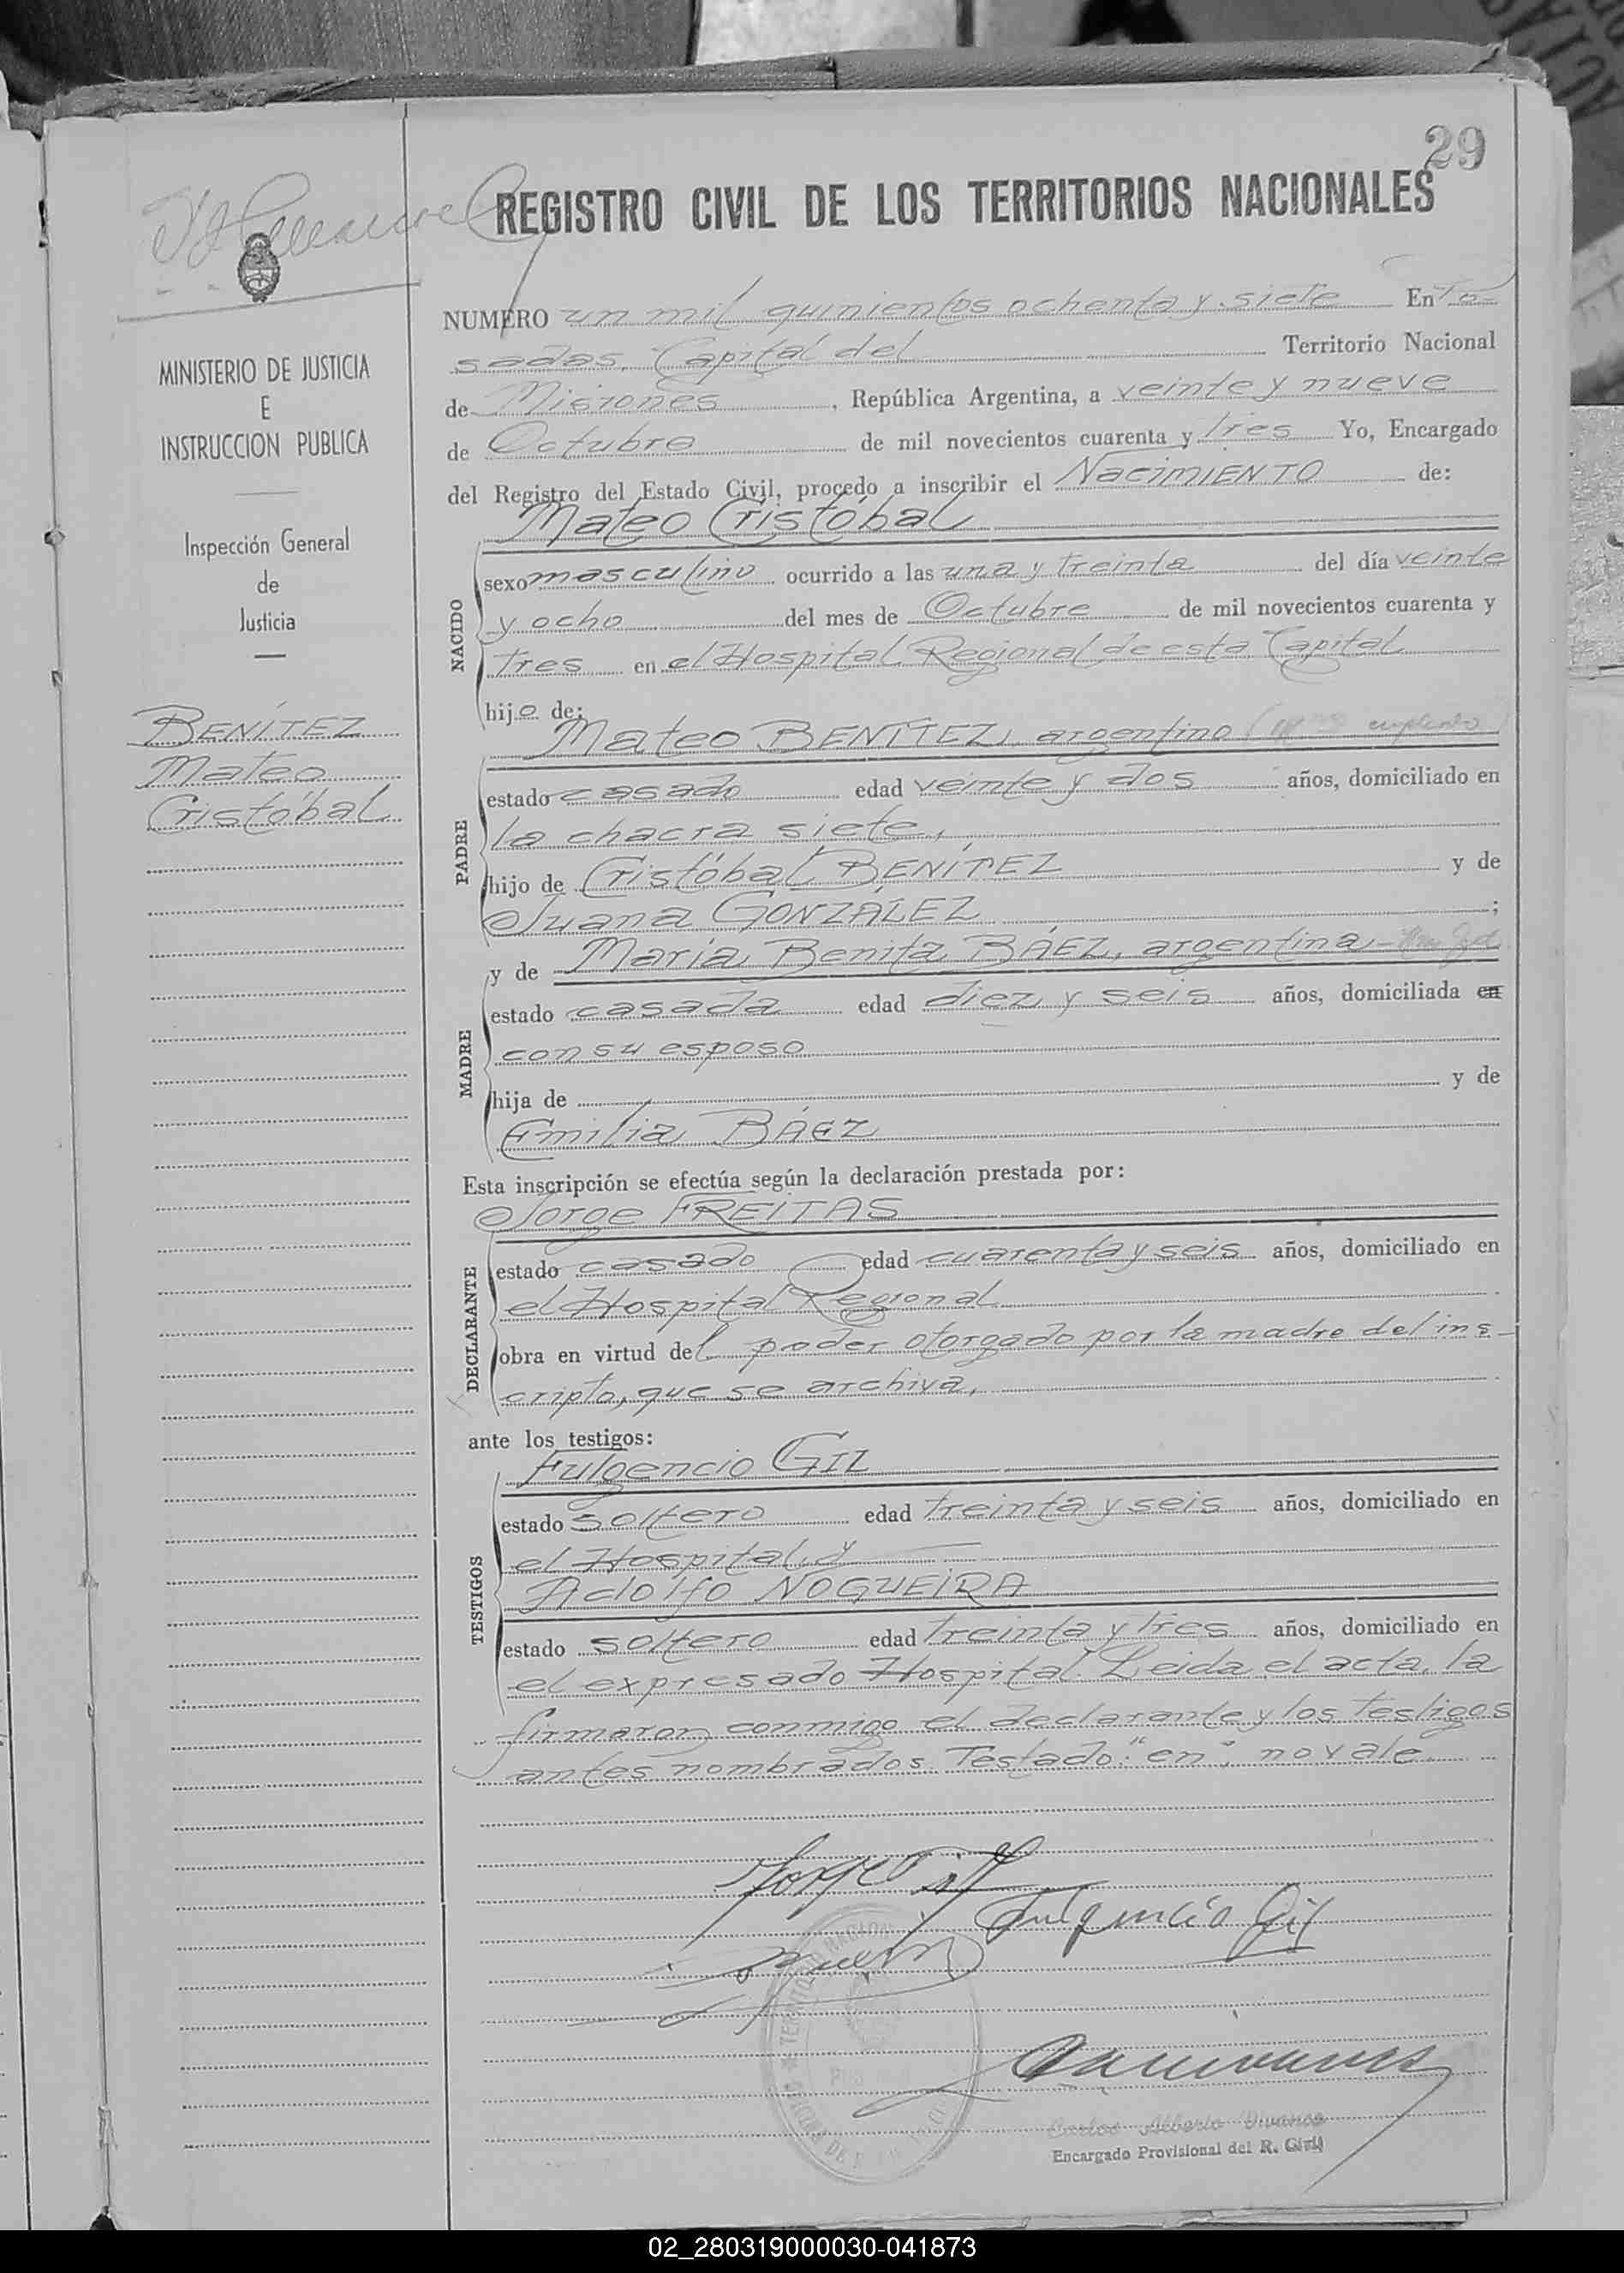 29
REGISTRO CIVIL DE LOS TERRITORIOS NACIONALES
MINISTERIO DE JUSTICIA
E
INSTRUCCION PUBLICA
Inspección General
de
Justicia
BENÍTEZ
Mateo
Cristóbal
NUMERO un mil quinientos ochenta y siete En Po-
sadas, Capital del Territorio Nacional
de Misiones, República Argentina, a veinte y nueve
de Octubre de mil novecientos cuarenta y tres Yo, Encargado
del Registro del Estado Civil, procedo a inscribir el NACIMIENTO de:
Mateo Cristóbal
NACIDO
sexo masculino ocurrido a las una y treinta del día veinte
y ocho del mes de Octubre de mil novecientos cuarenta y
tres en el Hospital Regional de esta Capital
hijo de:
Mateo BENÍTEZ, argentino
PADRE
estado casado edad veinte y dos años, domiciliado en
la chacra siete,
hijo de Cristóbal BENÍTEZ y de
Juana GONZÁLEZ ;
y de María Benita BÁEZ, argentina
MADRE
estado casada edad diez y seis años, domiciliada en
con su esposo
hija de y de
Emilia BÁEZ
Esta inscripción se efectúa según la declaración prestada por:
Jorge FREITAS
DECLARANTE
estado casado edad cuarenta y seis años, domiciliado en
el Hospital Regional
obra en virtud del poder otorgado por la madre del ins-
cripto, que se archiva,
ante los testigos:
Fulgencio GIL
TESTIGOS
estado soltero edad treinta y seis años, domiciliado en
el Hospital, y
Adolfo NOGUEIRA
estado soltero edad treinta y tres años, domiciliado en
el expresado Hospital. Leida el acta, la
firmaron conmigo el declarante y los testigos
antes nombrados. Testado: "en", no vale
Fulgencio Gil
Carlos Alberto
Encargado Provisional del R. Civil
02_280319000030-041873